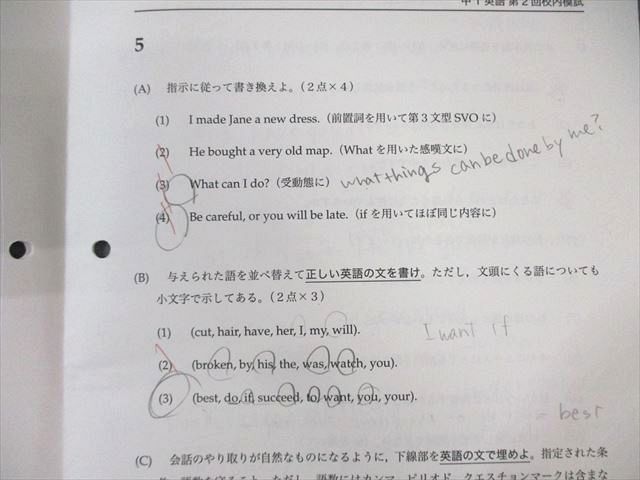 中1英語 第2回校内模試
5
(A) 指示に従って書き換えよ。(2点×4)
(1) I made Jane a new dress. (前置詞を用いて第3文型 SVO に)
(2) He bought a very old map. (What を用いた感嘆文に)
(3) What can I do? (受動態に) what things can be done by me?
(4) Be careful, or you will be late. (if を用いてほぼ同じ内容に)
(B) 与えられた語を並べ替えて正しい英語の文を書け。ただし，文頭にくる語についても
小文字で示してある。(2点×3)
(1) (cut, hair, have, her, I, my, will). I want if
(2) (broken, by, his, the, was, watch, you).
(3) (best, do, if, succeed, to, want, you, your).
= best
(C) 会話のやり取りが自然なものになるように，下線部を英語の文で埋めよ。指定された条
ただし，語数にはカンマ，ピリオド，クエスチョンマークは含まな